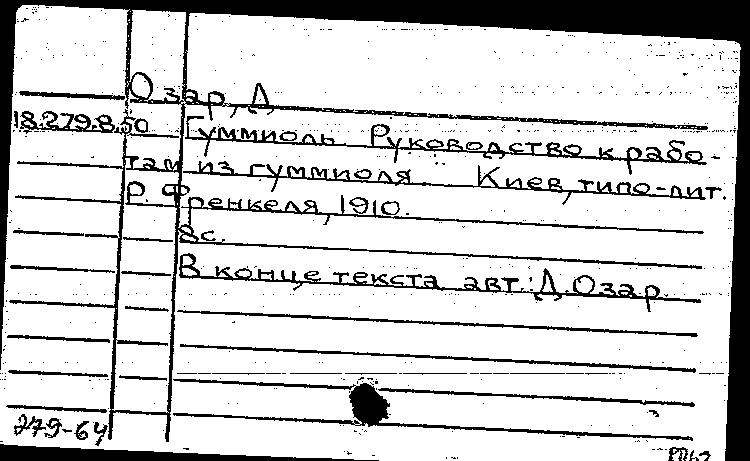 Озар, Д
18.279.8.50 Гуммиоль. Руководство к рабо-
там из гуммиоля. Киев, типо-лит.
Р. Френкеля, 1910.
8с.
В конце текста авт.: Д. Озар.
279-64